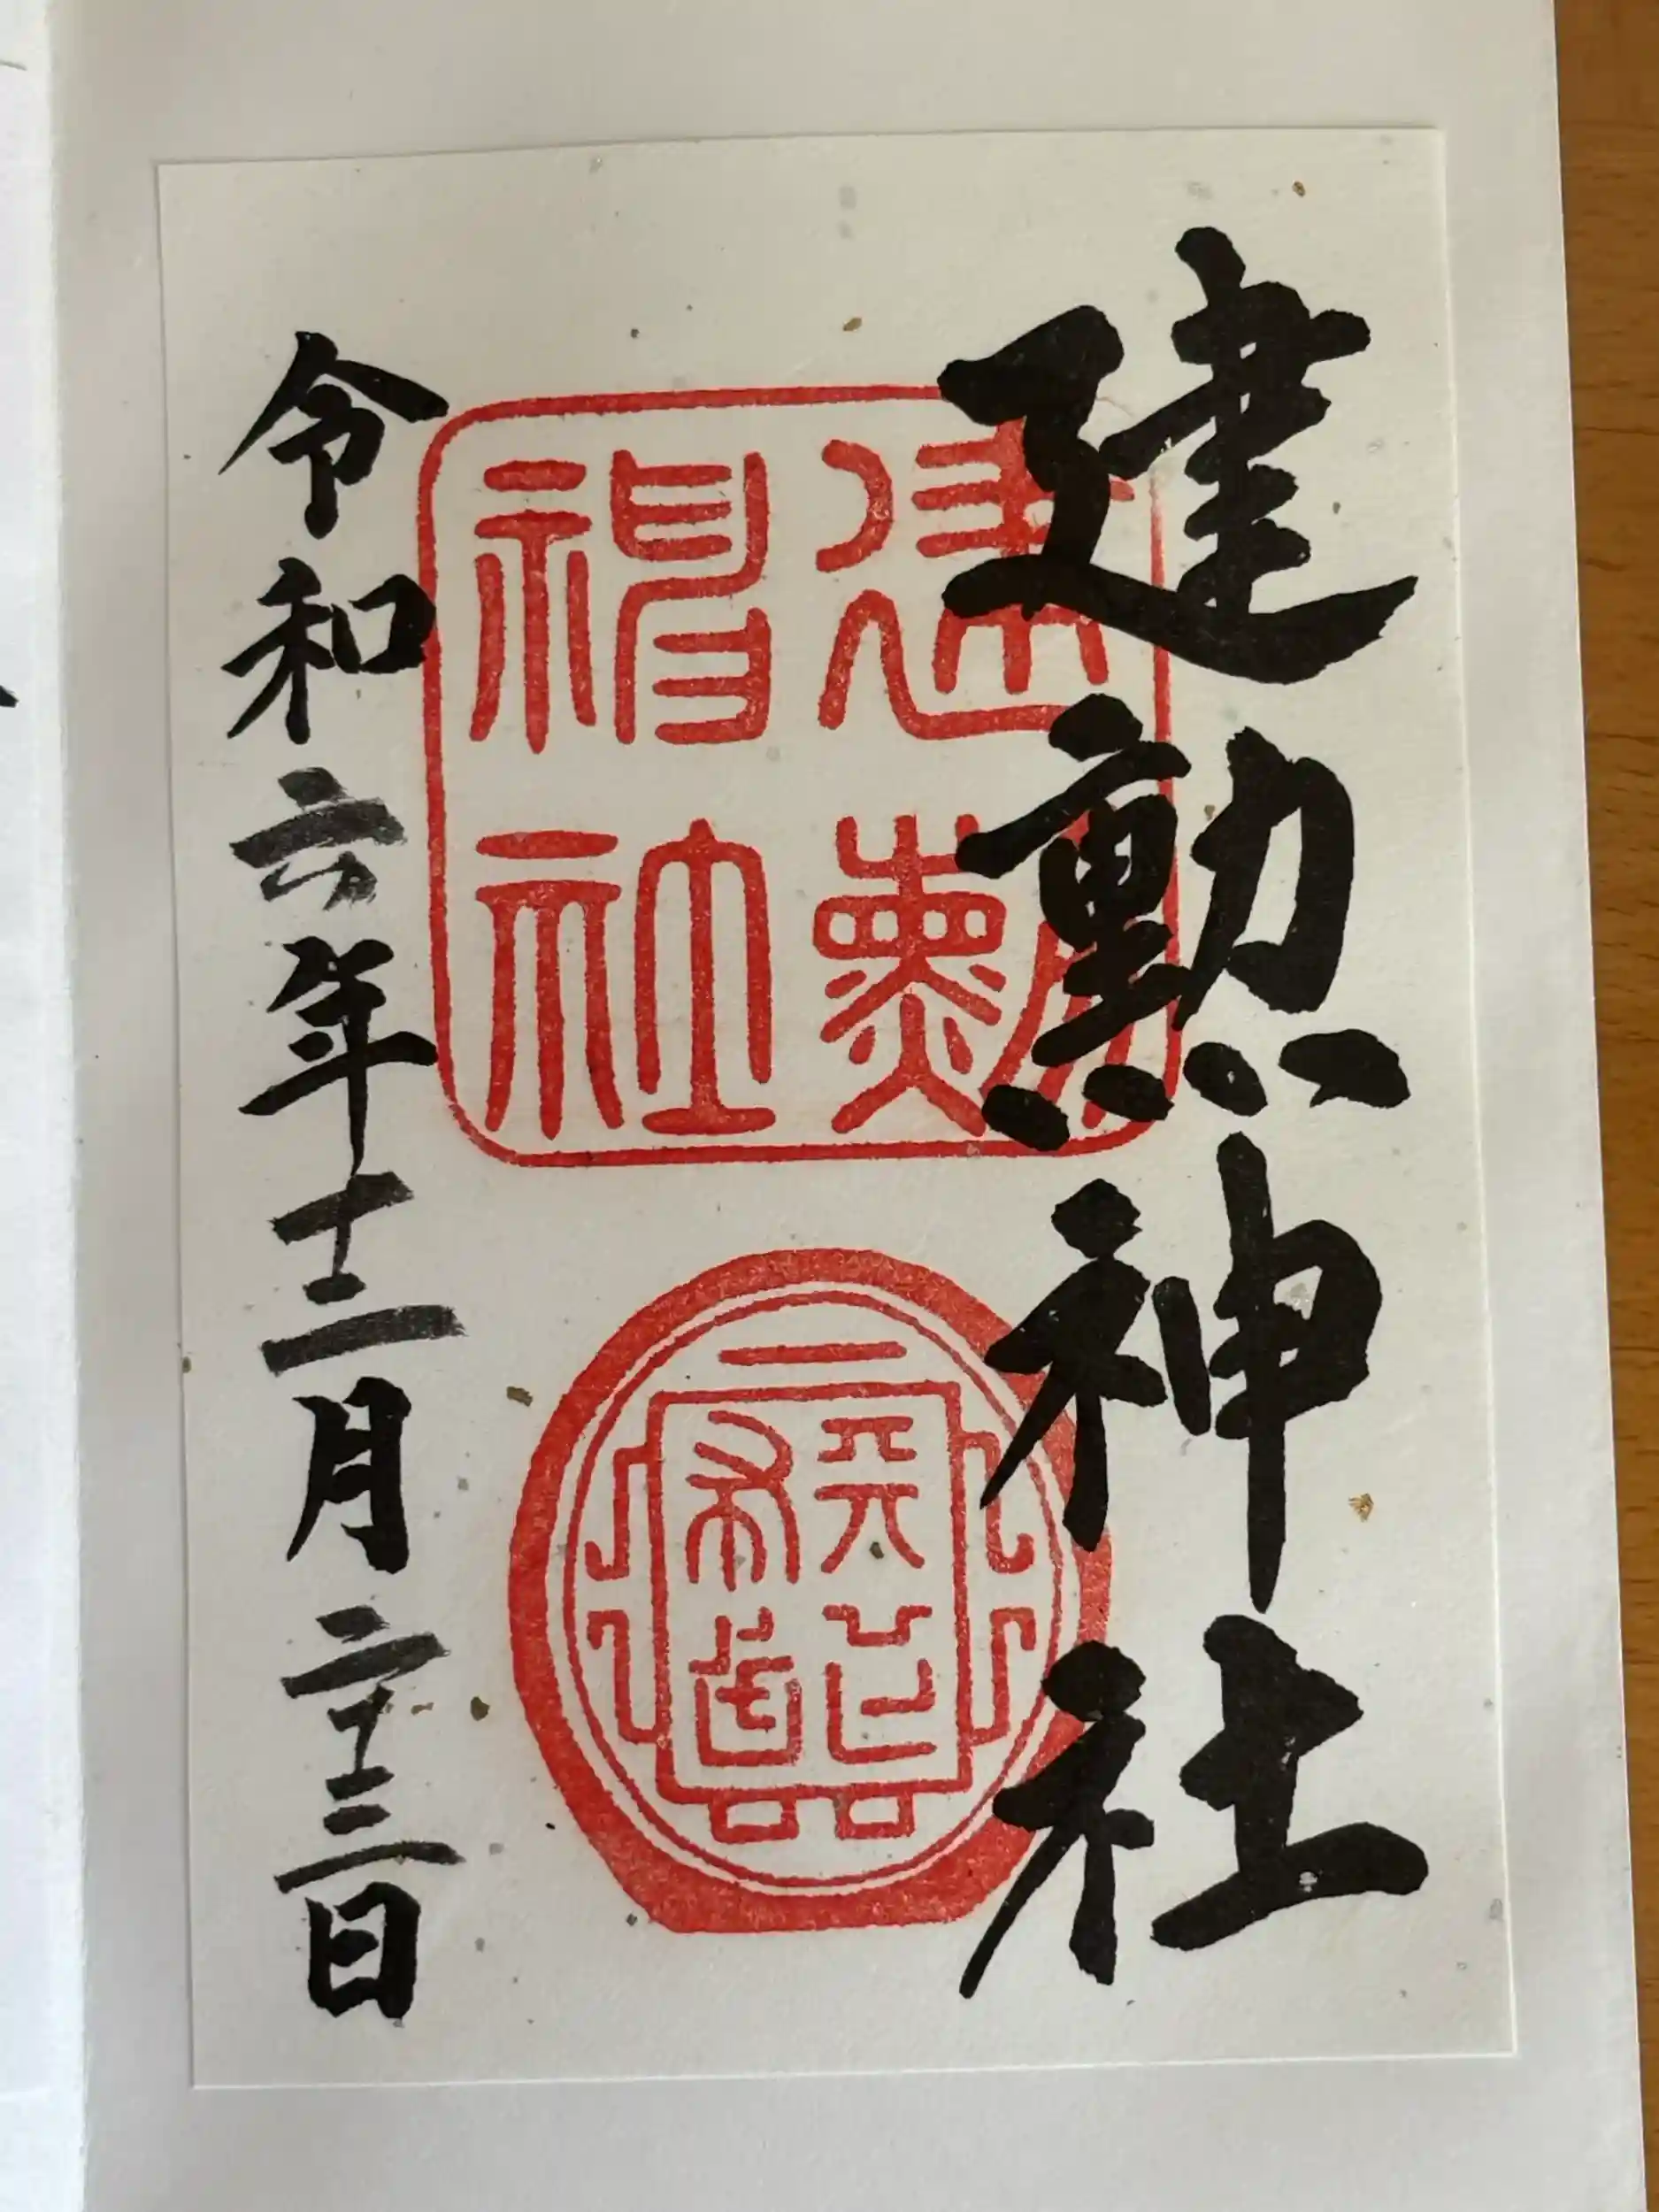 建勲神社
建勲
神社
天下
布武
令和六年十二月二十三日